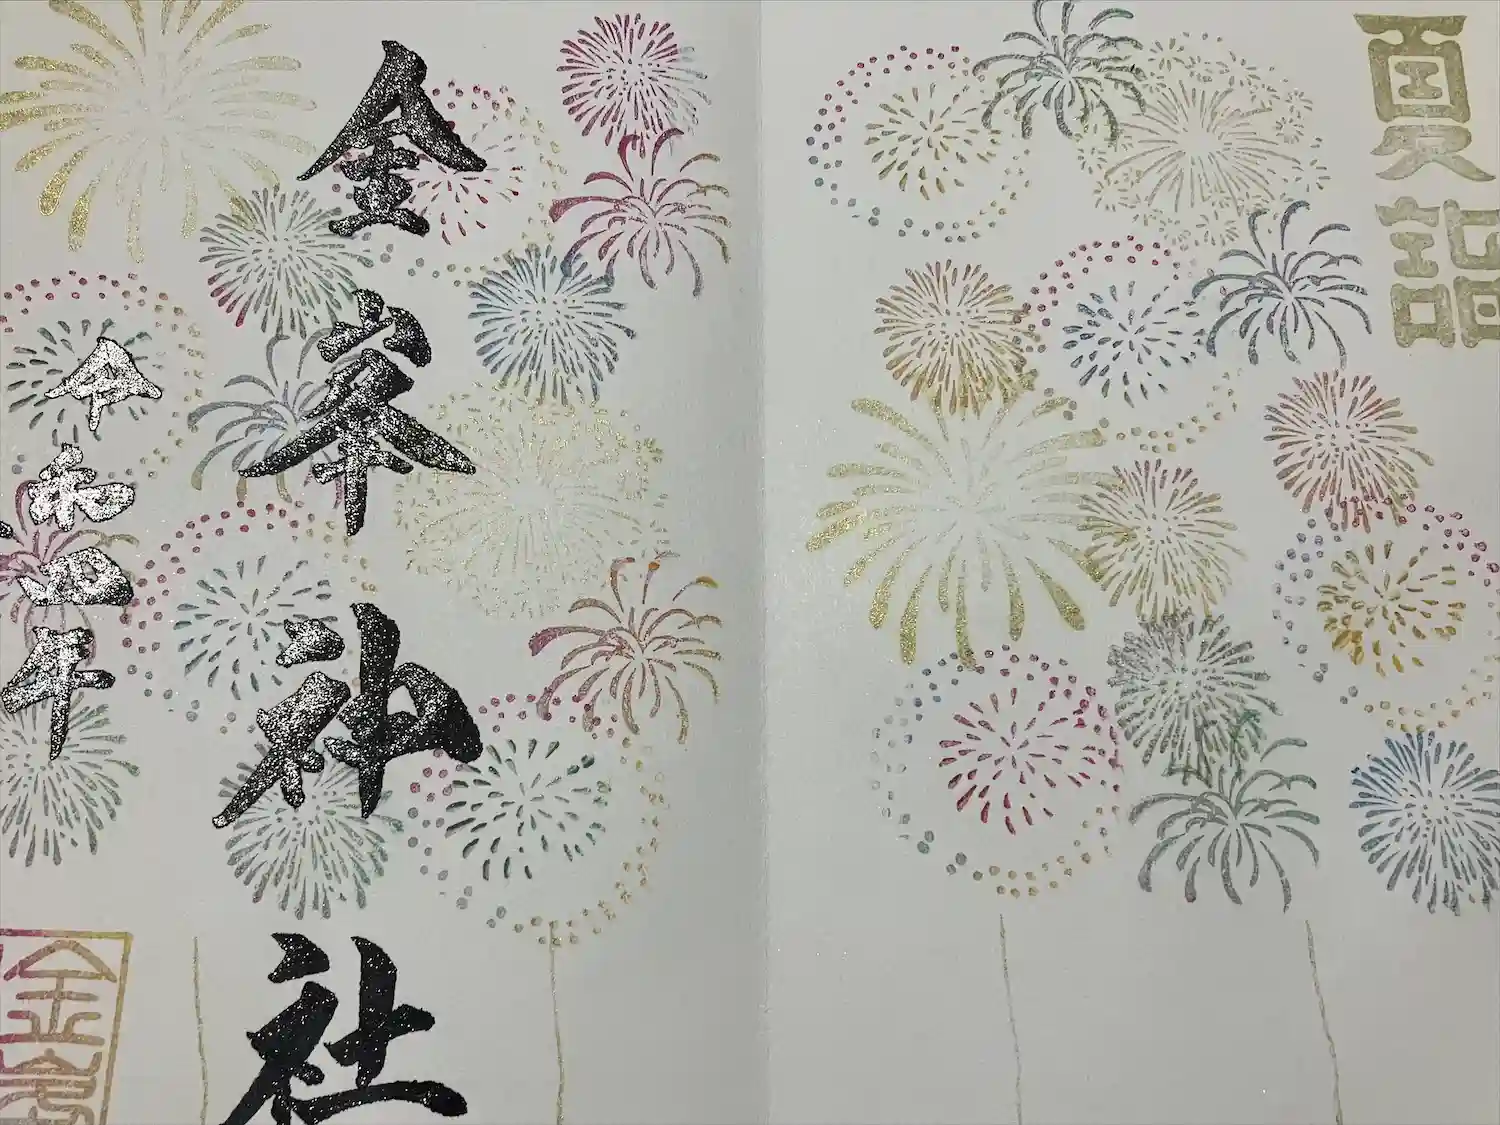 夏詣
金峯神社
令和四年
金峯